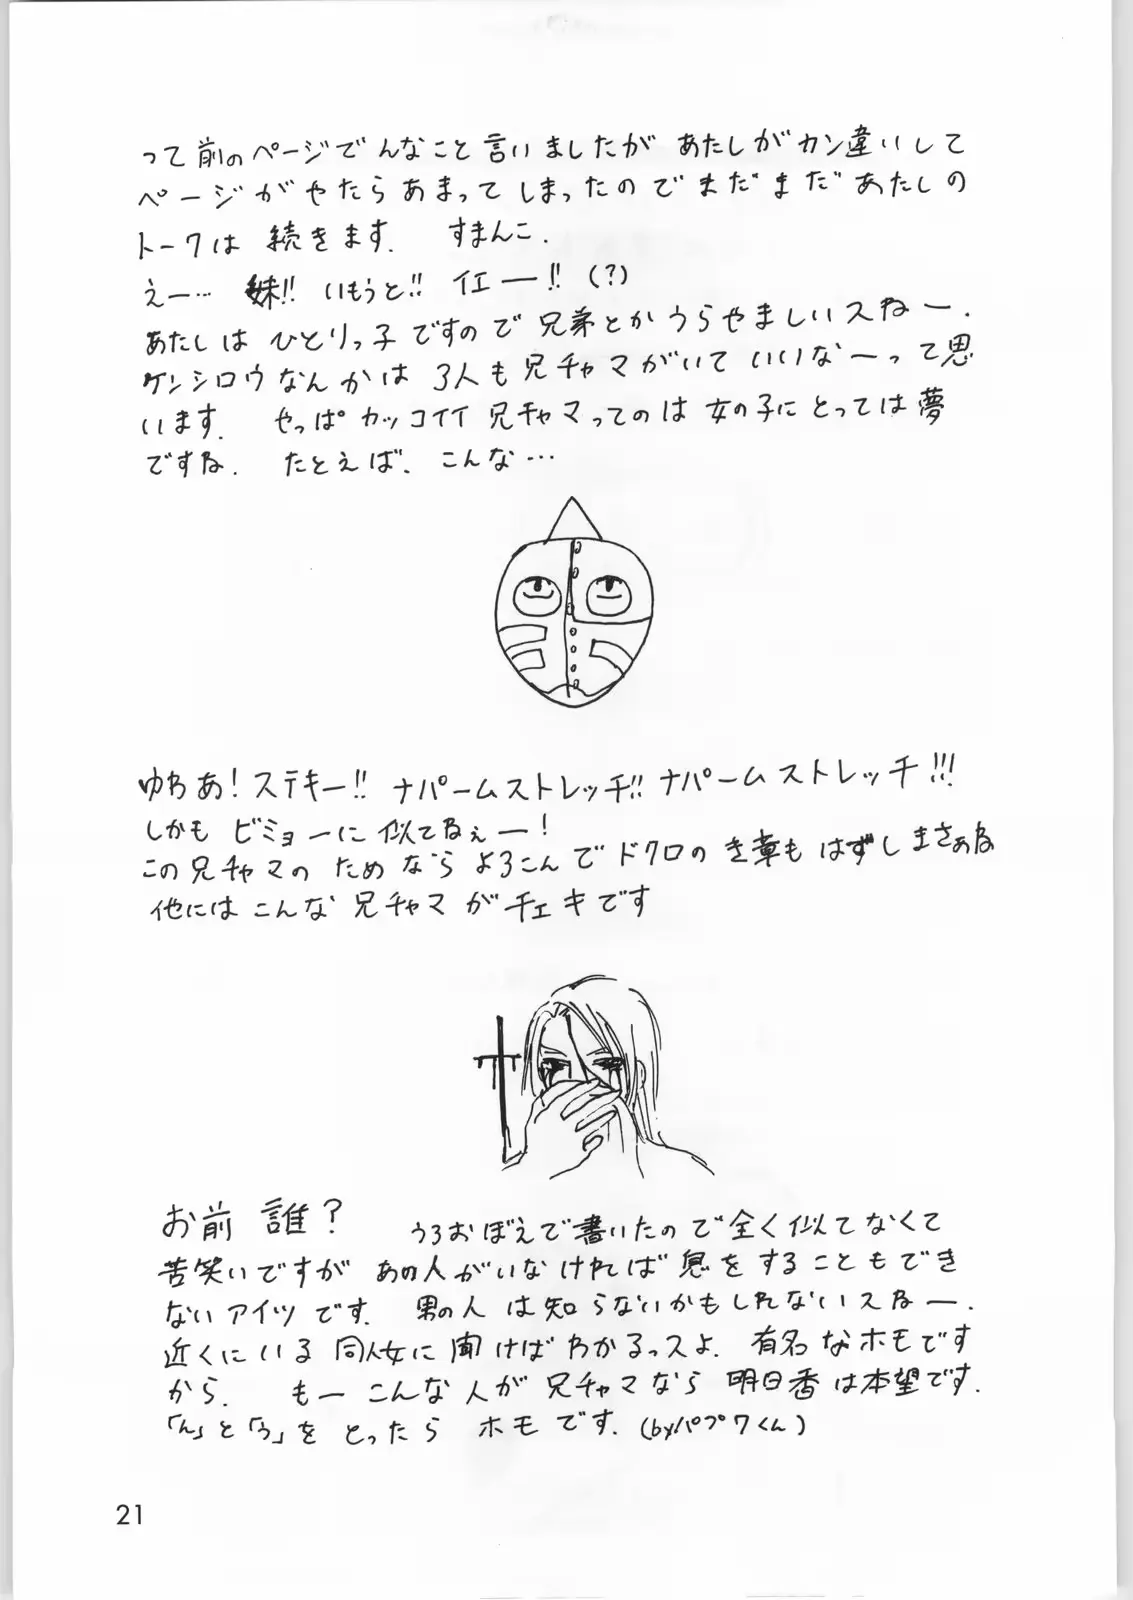 って前のページでんなこと言いましたが あたしがカン違いして
ページがやたらあまってしまったのでまだまだあたしの
トークは 続きます. すまんこ.
えー… 妹!! いもうと!! イエー!! (?)
あたしは ひとりっ子ですので 兄弟とか うらやましいスねー.
ケンシロウなんかは 3人も兄チャマがいて いいなーって思
います. やっぱ カッコイイ 兄チャマってのは 女の子にとっては夢
ですね. たとえば、こんな…
ゆわぁ! ステキー!! ナパームストレッチ!! ナパームストレッチ!!!
しかも ビミョーに 似てねぇー!
この兄チャマの ためなら よろこんで ドクロの き章も はずしまさぁね
他にはこんな 兄チャマ が チェキです
お前 誰? うろおぼえで書いたので全く似てなくて
苦笑いですが あの人がいなければ 息をすることもでき
ないアイツです. 男の人は知らないかもしれないスねー.
近くにいる 同人女に 聞けば わかるっスよ. 有名なホモです
から. もー こんな人が 兄チャマなら 明日香は本望です.
「ん」と「う」を とったら ホモです. (byパプワくん)
21